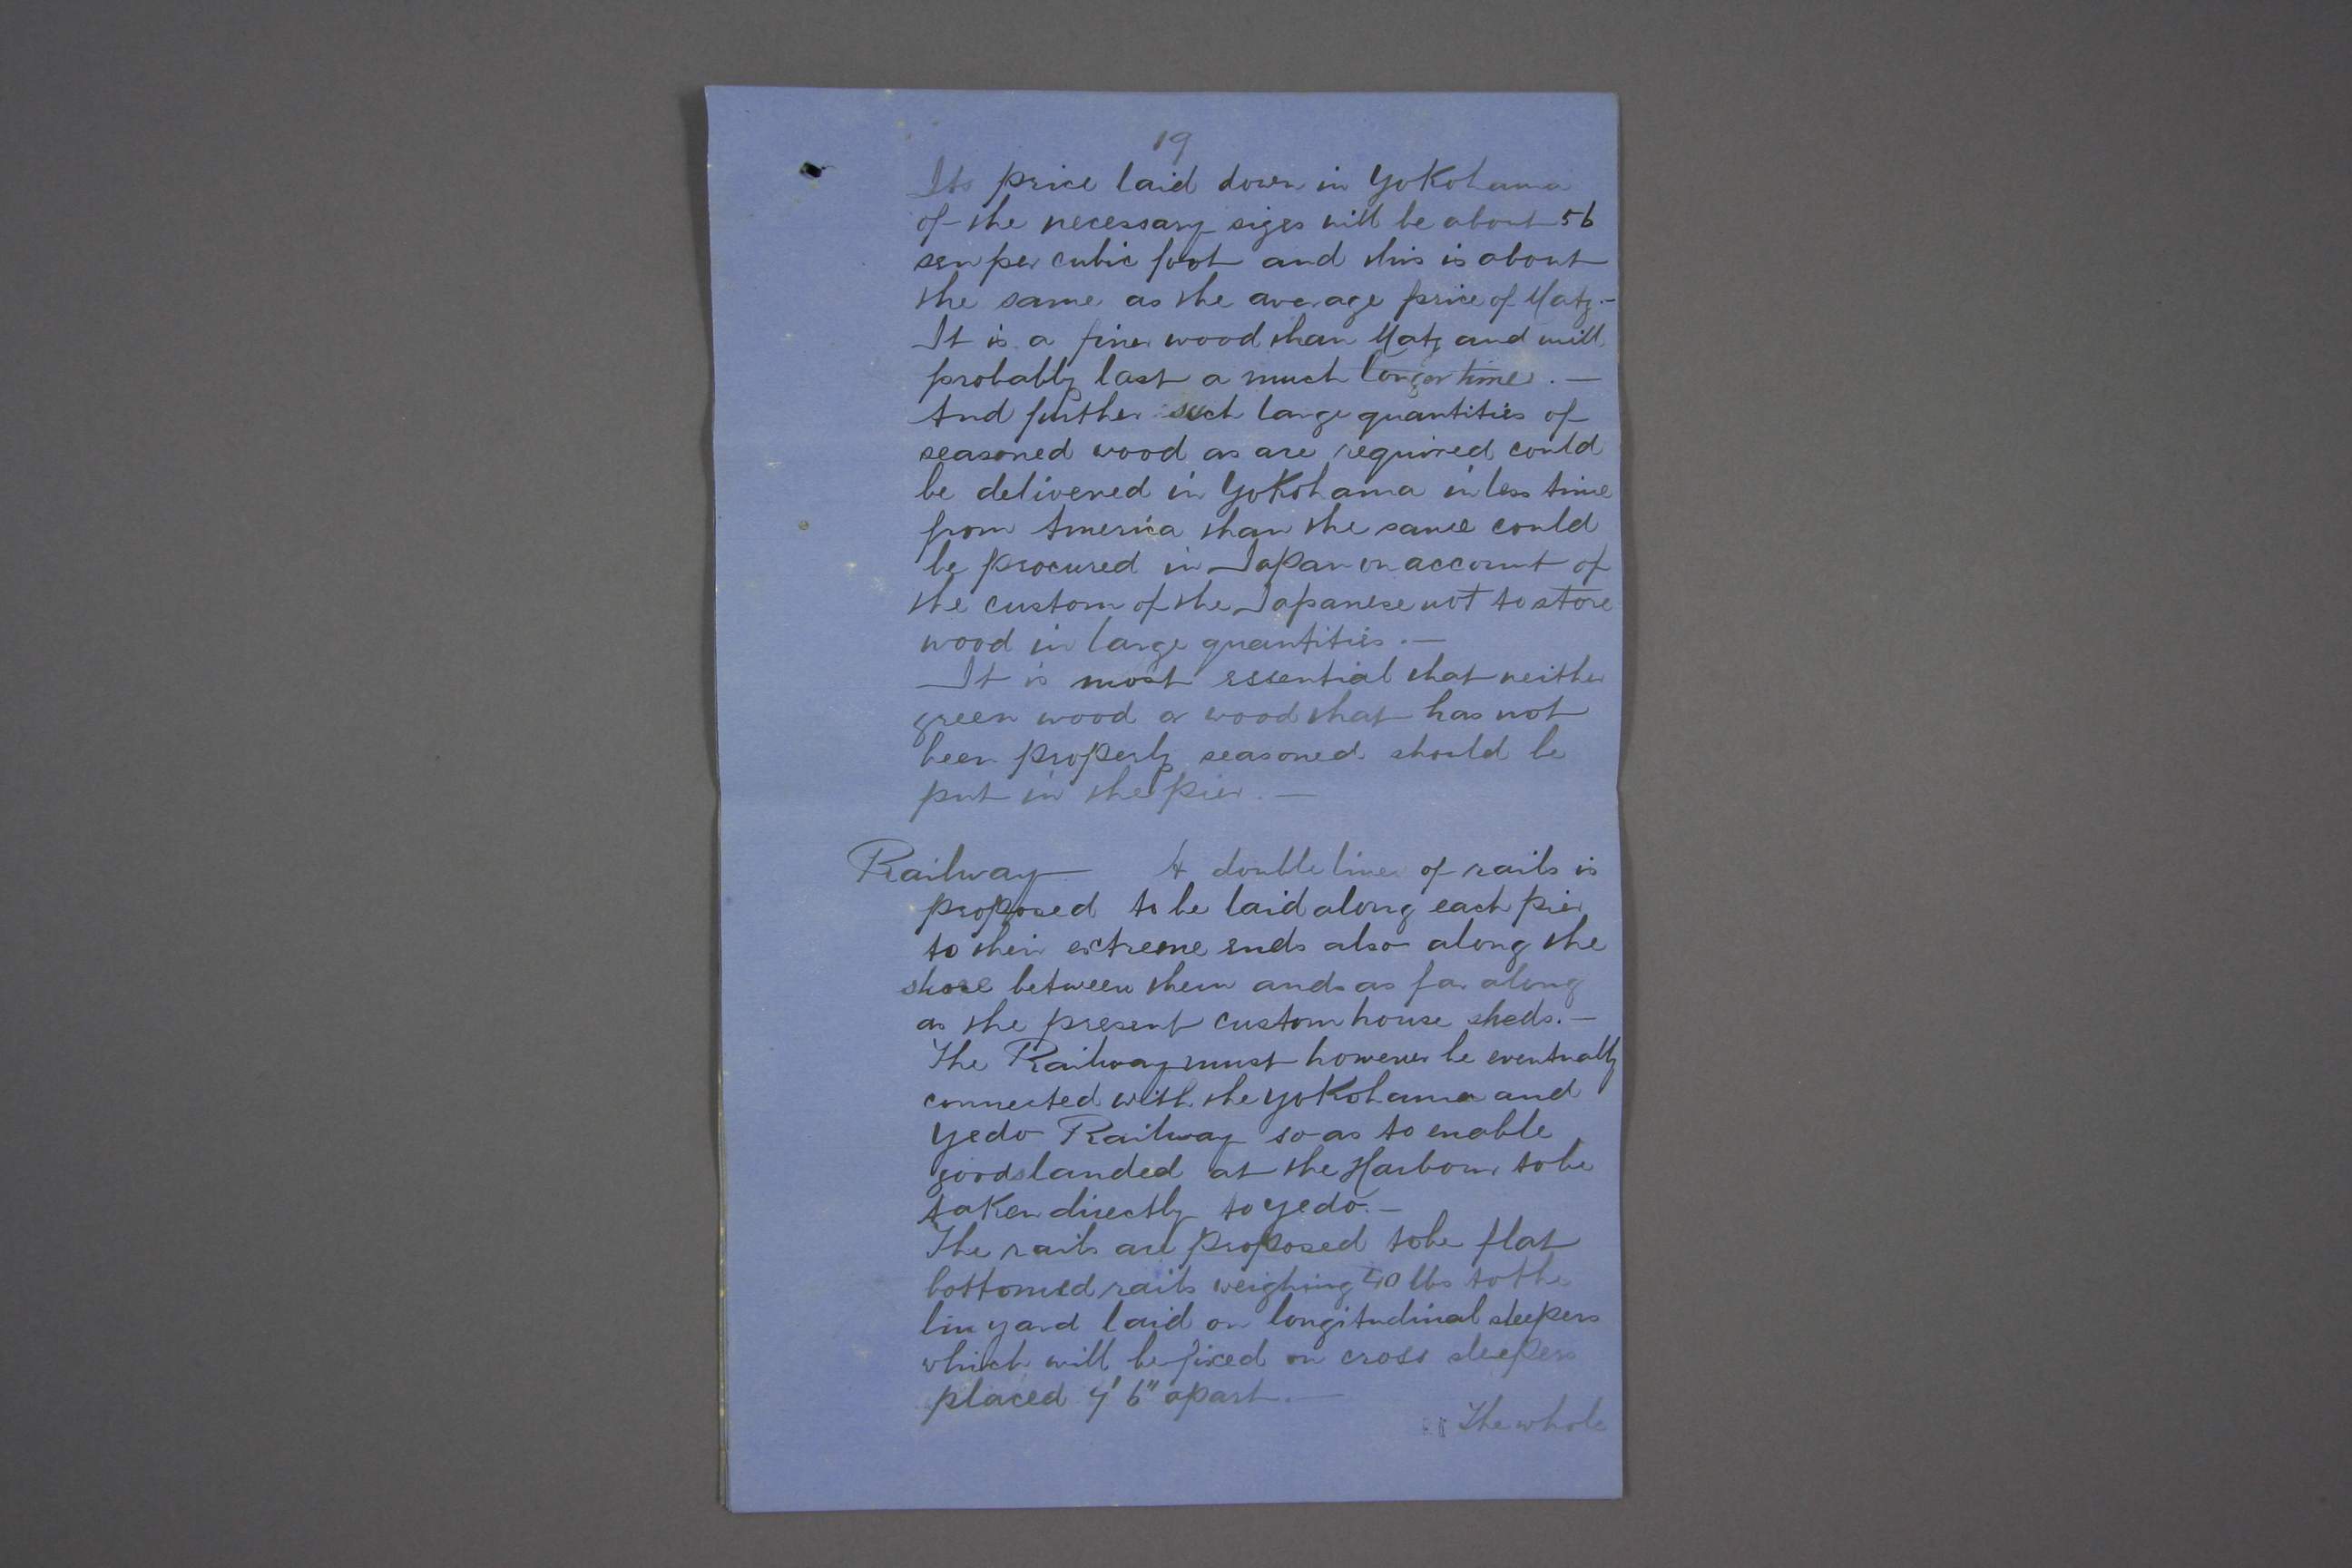 19
Its price laid down in Yokohama
of the necessary sizes will be about 56
sen per cubic foot and this is about
the same as the average price of Matz.—
It is a finer wood than Matz and will
probably last a much longer time.—
And further such large quantities of
seasoned wood as are required could
be delivered in Yokohama in less time
from America than the same could
be procured in Japan on account of
the custom of the Japanese not to store
wood in large quantities.—
It is most essential that neither
green wood or wood that has not
been properly seasoned should be
put in the pier.—
Railway A double line of rails is
proposed to be laid along each pier
to their extreme ends also along the
shore between them and as far along
as the present custom house sheds.—
The Railway must however be eventually
connected with the Yokohama and
Yedo Railway so as to enable
goods landed at the Harbour to be
taken directly to Yedo.—
The rails are proposed to be flat
bottomed rails weighing 40 lbs to the
lin yard laid on longitudinal sleepers
which will be fixed on cross sleepers
placed 4' 6" apart.—
The whole